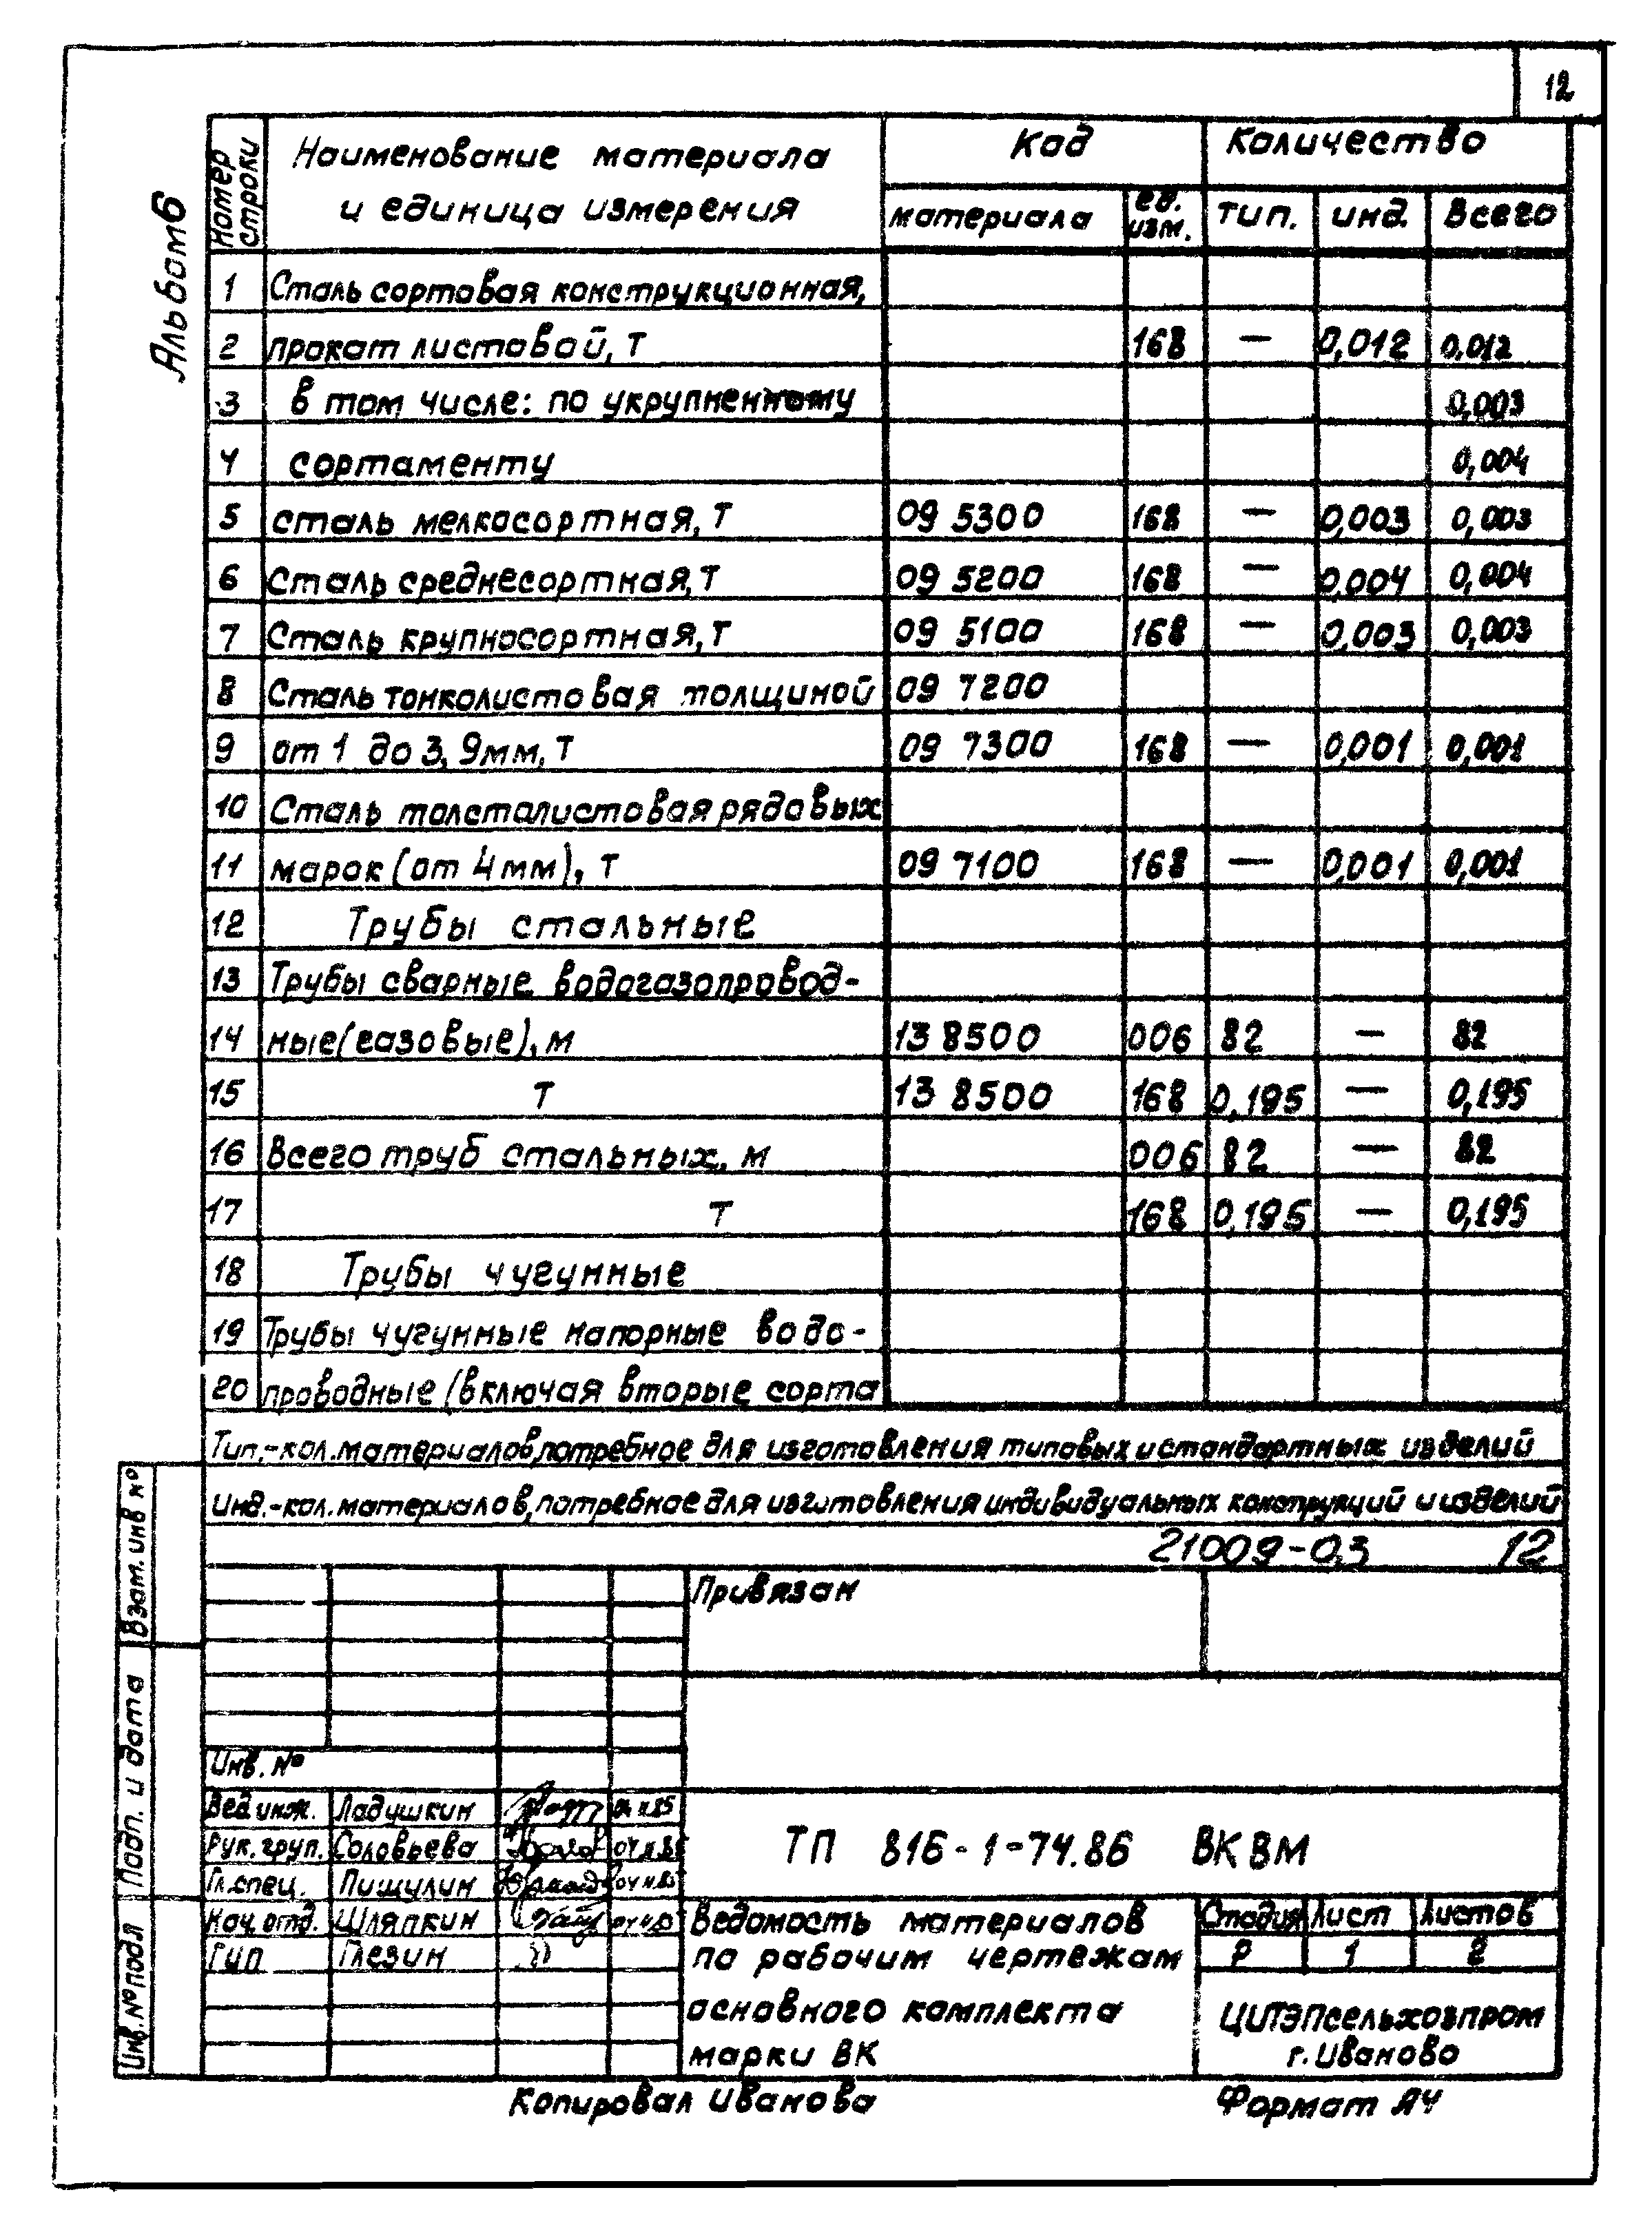 12
Альбом 6
Номер строки | Наименование материала и единица измерения | Код | Количество
материала | ед. изм. | тип. | инд. | Всего
1 Сталь сортовая конструкционная,
2 прокат листовой, т 168 — 0,012 0,012
3 в том числе: по укрупненному 0,003
4 сортаменту 0,004
5 сталь мелкосортная, т 09 5300 168 — 0,003 0,003
6 Сталь среднесортная, т 09 5200 168 — 0,004 0,004
7 Сталь крупносортная, т 09 5100 168 — 0,003 0,003
8 Сталь тонколистовая толщиной 09 7200
9 от 1 до 3,9мм, т 09 7300 168 — 0,001 0,001
10 Сталь толстолистовая рядовых
11 марок (от 4 мм), т 09 7100 168 — 0,001 0,001
12 Трубы стальные
13 Трубы сварные водогазопровод-
14 ные (газовые), м 13 8500 006 82 — 82
15 т 13 8500 168 0,195 — 0,195
16 Всего труб стальных, м 006 82 — 82
17 т 168 0,195 — 0,195
18 Трубы чугунные
19 Трубы чугунные напорные водо-
20 проводные (включая вторые сорта
Тип.-кол. материалов, потребное для изготовления типовых и стандартных изделий
инд.-кол. материалов, потребное для изготовления индивидуальных конструкций и изделий
21009-03 12
Привязан
Инв. №
Вед инж. Ладушкин
Рук. груп. Соловьева
Гл. спец. Пищулин
Нач. отд. Шляпкин
ГИП Глезин
ТП 816-1-74.86 ВК ВМ
Ведомость материалов
по рабочим чертежам
основного комплекта
марки ВК
Стадия Лист Листов
Р 1 2
ЦИТЭПсельхозпром
г. Иваново
Взам. инв №
Подп. и дата
Инв. № подл
Копировал Иванова
Формат А4